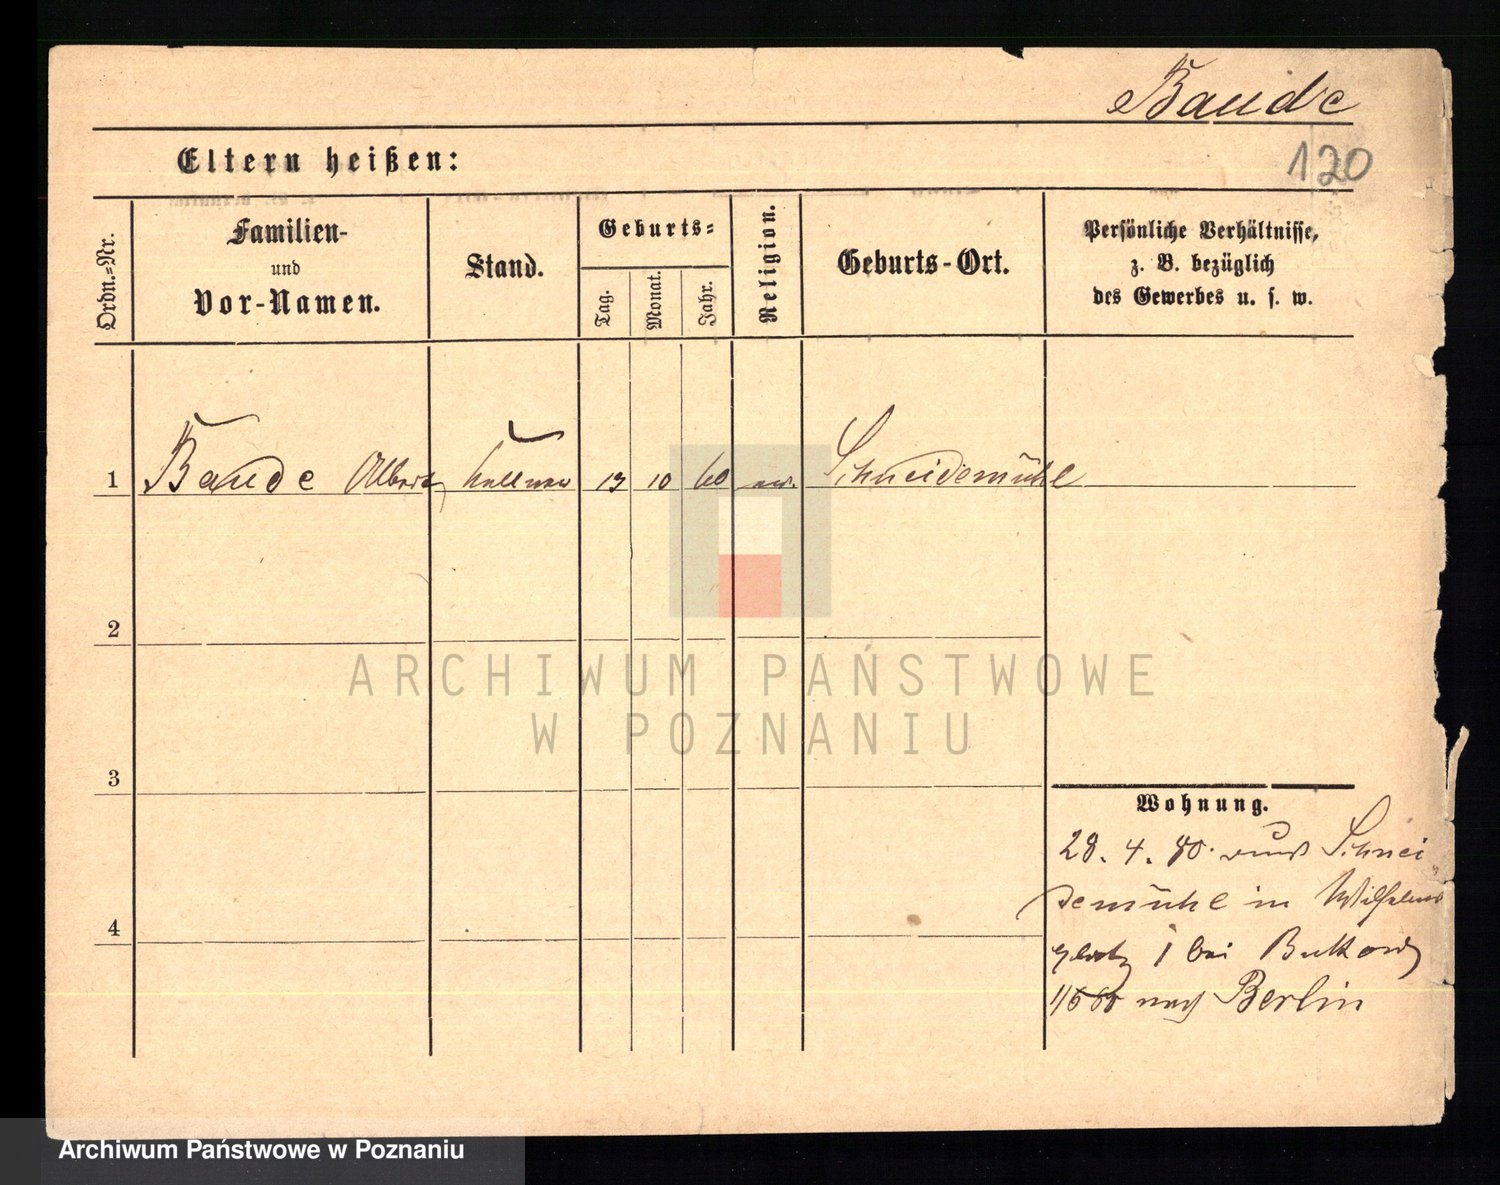 Baude
Eltern heißen:
120
Ordn.=Nr.
Familien-
und
Vor-Namen.
Stand.
Geburts=
Tag.
Monat.
Jahr.
Religion.
Geburts-Ort.
Persönliche Verhältnisse,
z. B. bezüglich
des Gewerbes u. s. w.
1 Baude Albert Kellner 13 10 60 ev. Schneidemühl
2
3
4
Wohnung.
28. 4. 80. aus Schnei
demühl in Wilhelms
platz 1 bei Bukow
nach Berlin
ARCHIWUM PAŃSTWOWE
W POZNANIU
Archiwum Państwowe w Poznaniu